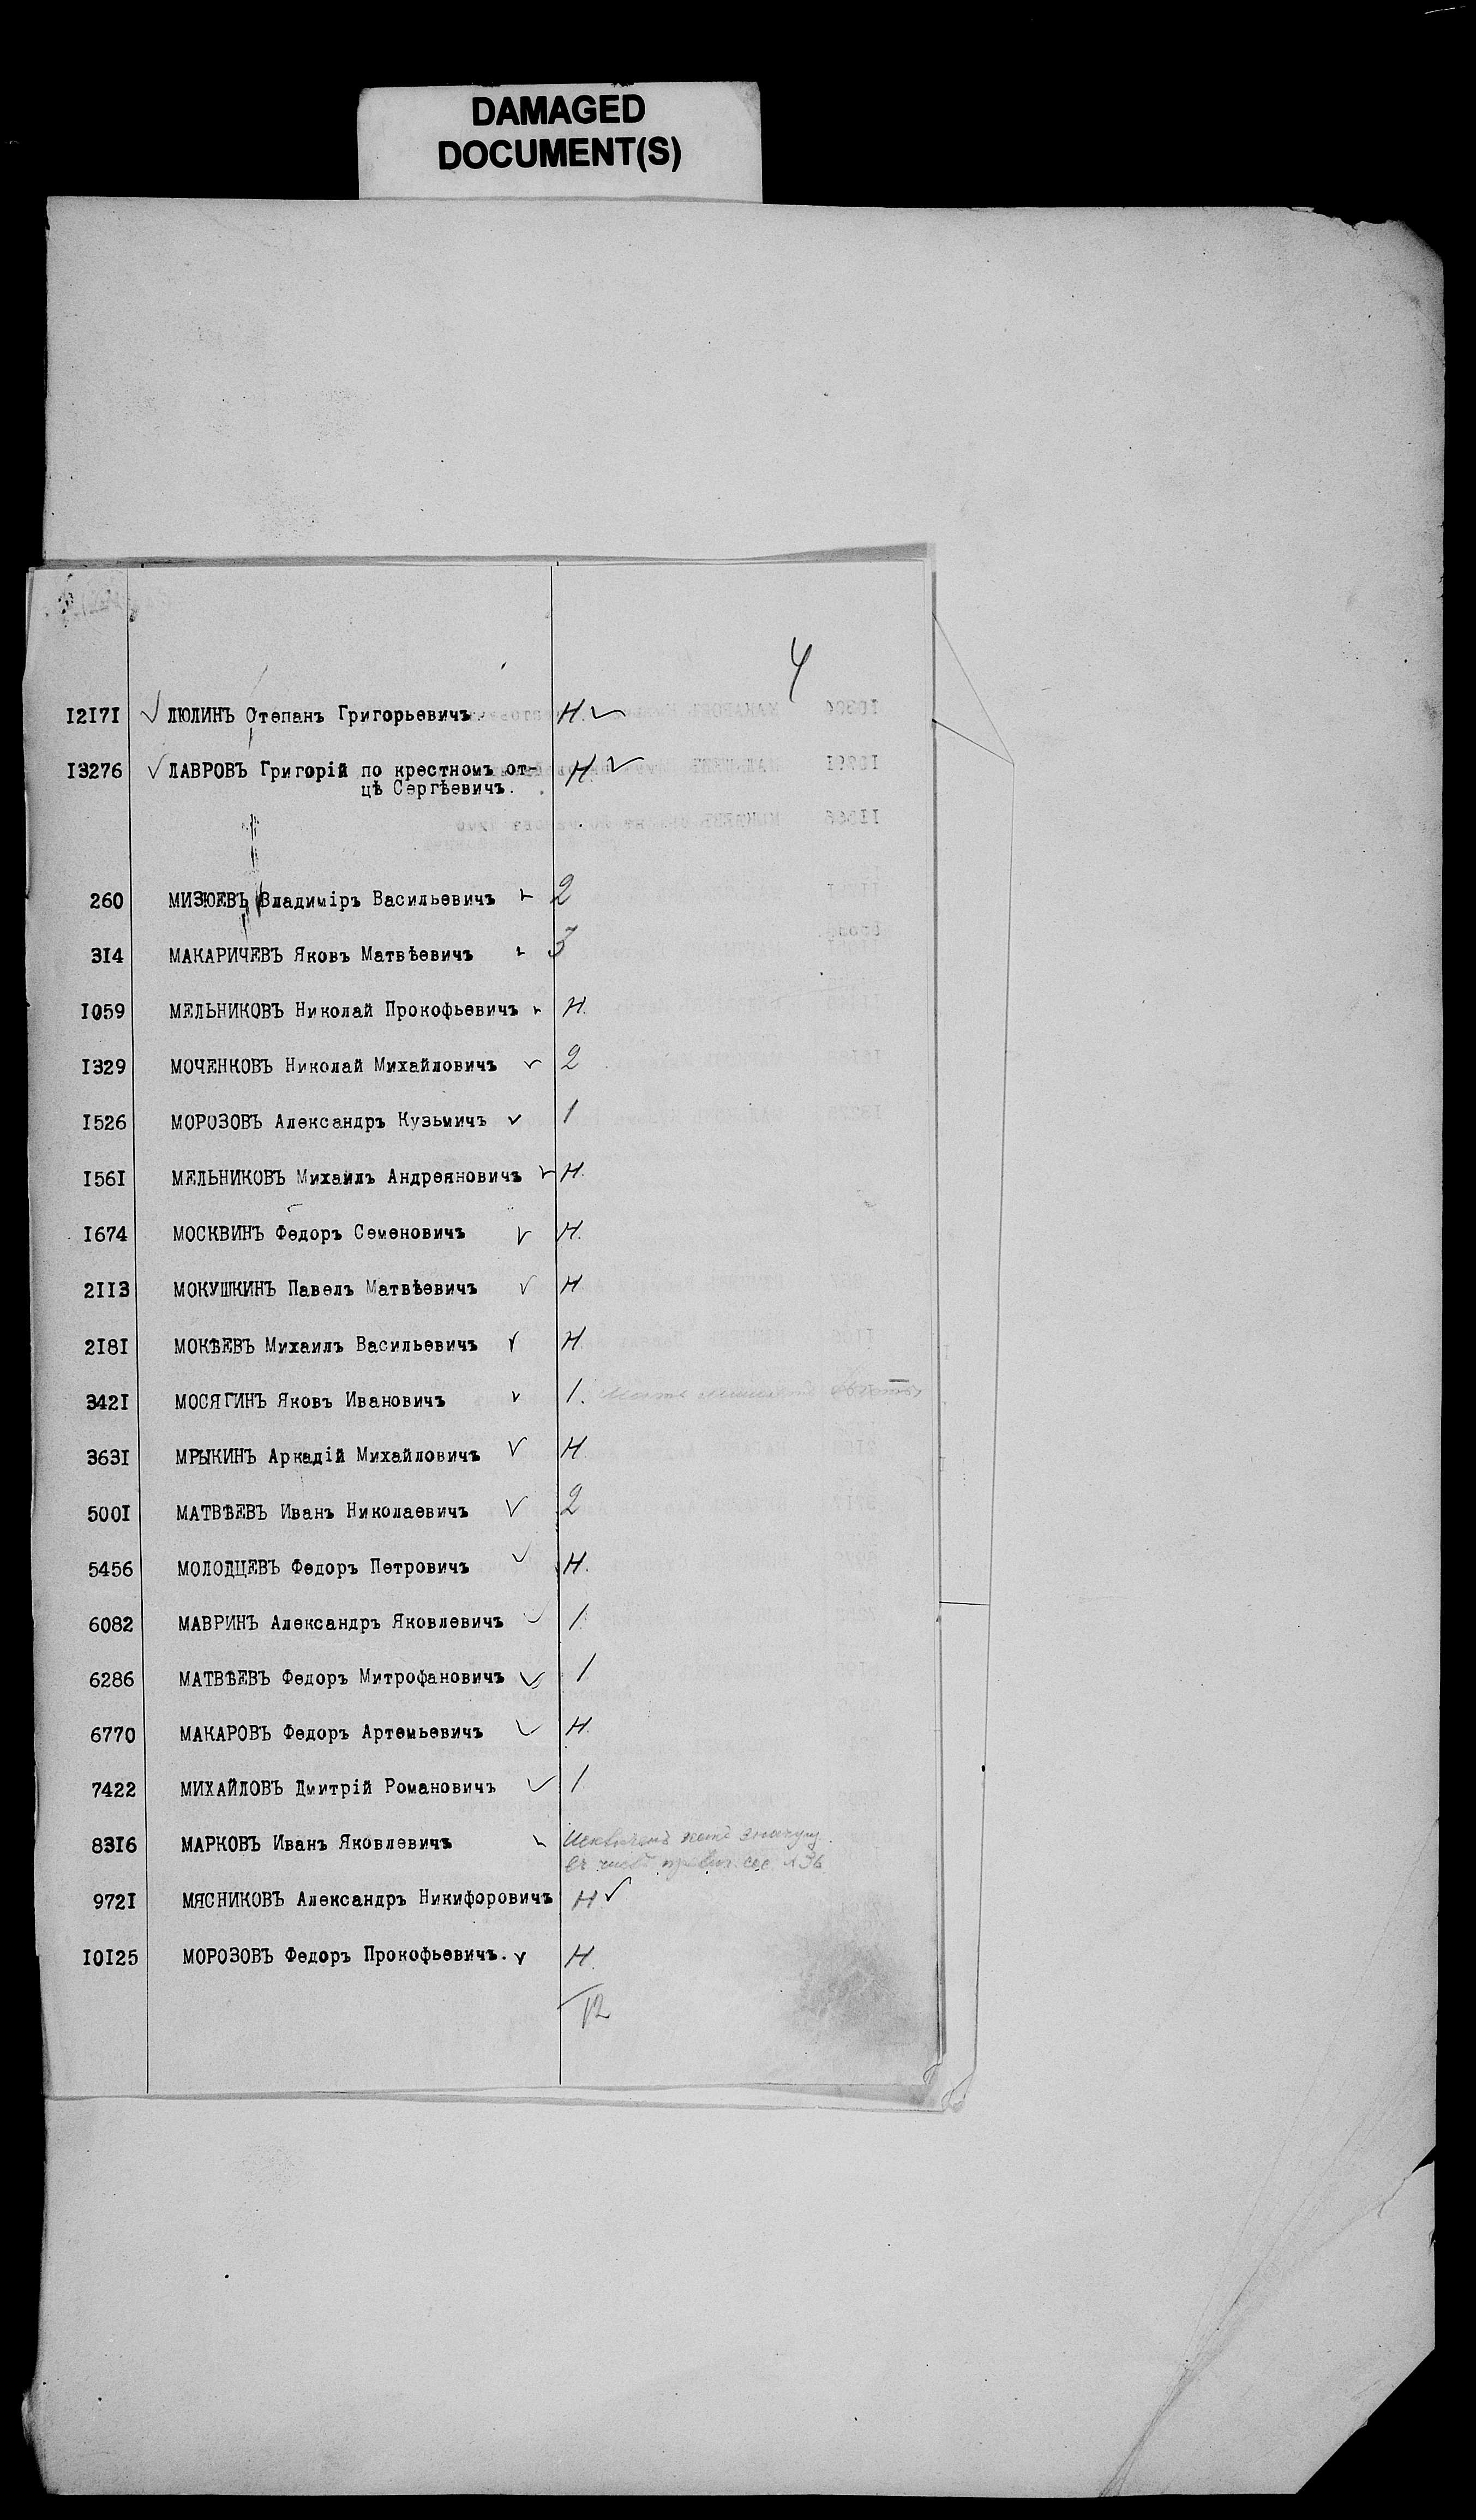 DAMAGED
DOCUMENT(S)
4
I2I7I ✓ ЛЮЛИНЪ Степанъ Григорьевичъ. Н. ✓
I3276 ✓ ЛАВРОВЪ Григорій по крестномъ от- Н ✓
цѣ Сергѣевичъ.
260 МИЗЮЕВЪ Владиміръ Васильевичъ ✓ 2
3I4 МАКАРИЧЕВЪ Яковъ Матвѣевичъ ✓ 3
I059 МЕЛЬНИКОВЪ Николай Прокофьевичъ ✓ Н.
I329 МОЧЕНКОВЪ Николай Михайловичъ ✓ 2
I526 МОРОЗОВЪ Александръ Кузьмичъ ✓ 1
I56I МЕЛЬНИКОВЪ Михаилъ Андреяновичъ ✓ Н.
I674 МОСКВИНЪ Федоръ Семеновичъ ✓ Н.
2II3 МОКУШКИНЪ Павелъ Матвѣевичъ ✓ Н
2I8I МОКѢЕВЪ Михаилъ Васильевичъ ✓ Н
342I МОСЯГИНЪ Яковъ Ивановичъ ✓ 1.
363I МРЫКИНЪ Аркадій Михайловичъ ✓ Н
500I МАТВѢЕВЪ Иванъ Николаевичъ ✓ 2
5456 МОЛОДЦЕВЪ Федоръ Петровичъ ✓ Н.
6082 МАВРИНЪ Александръ Яковлевичъ ✓ 1
6286 МАТВѢЕВЪ Федоръ Митрофановичъ ✓ 1
6770 МАКАРОВЪ Федоръ Артемьевичъ ✓ Н.
7422 МИХАЙЛОВЪ Дмитрій Романовичъ ✓ 1
83I6 МАРКОВЪ Иванъ Яковлевичъ ✓
972I МЯСНИКОВЪ Александръ Никифоровичъ Н. ✓
I0I25 МОРОЗОВЪ Федоръ Прокофьевичъ. ✓ Н.
12